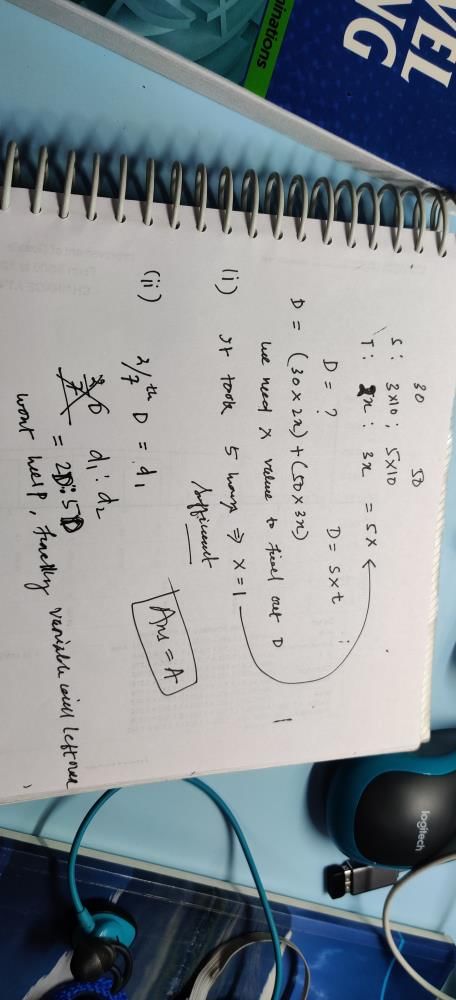 30 50
S: 3x10 ; 5x10
T: 2x : 3x = 5x
D = ? D = s x t
D = (30 x 2x) + (50 x 3x)
we need x value to find out D
(i) It took 5 hours => x = 1
Sufficient
(ii) 2/7 th D = d1
Ans = A
d1 : d2
= 2D : 5D
wont help, finally variable will leftover
VEL
NG
minations
logitech